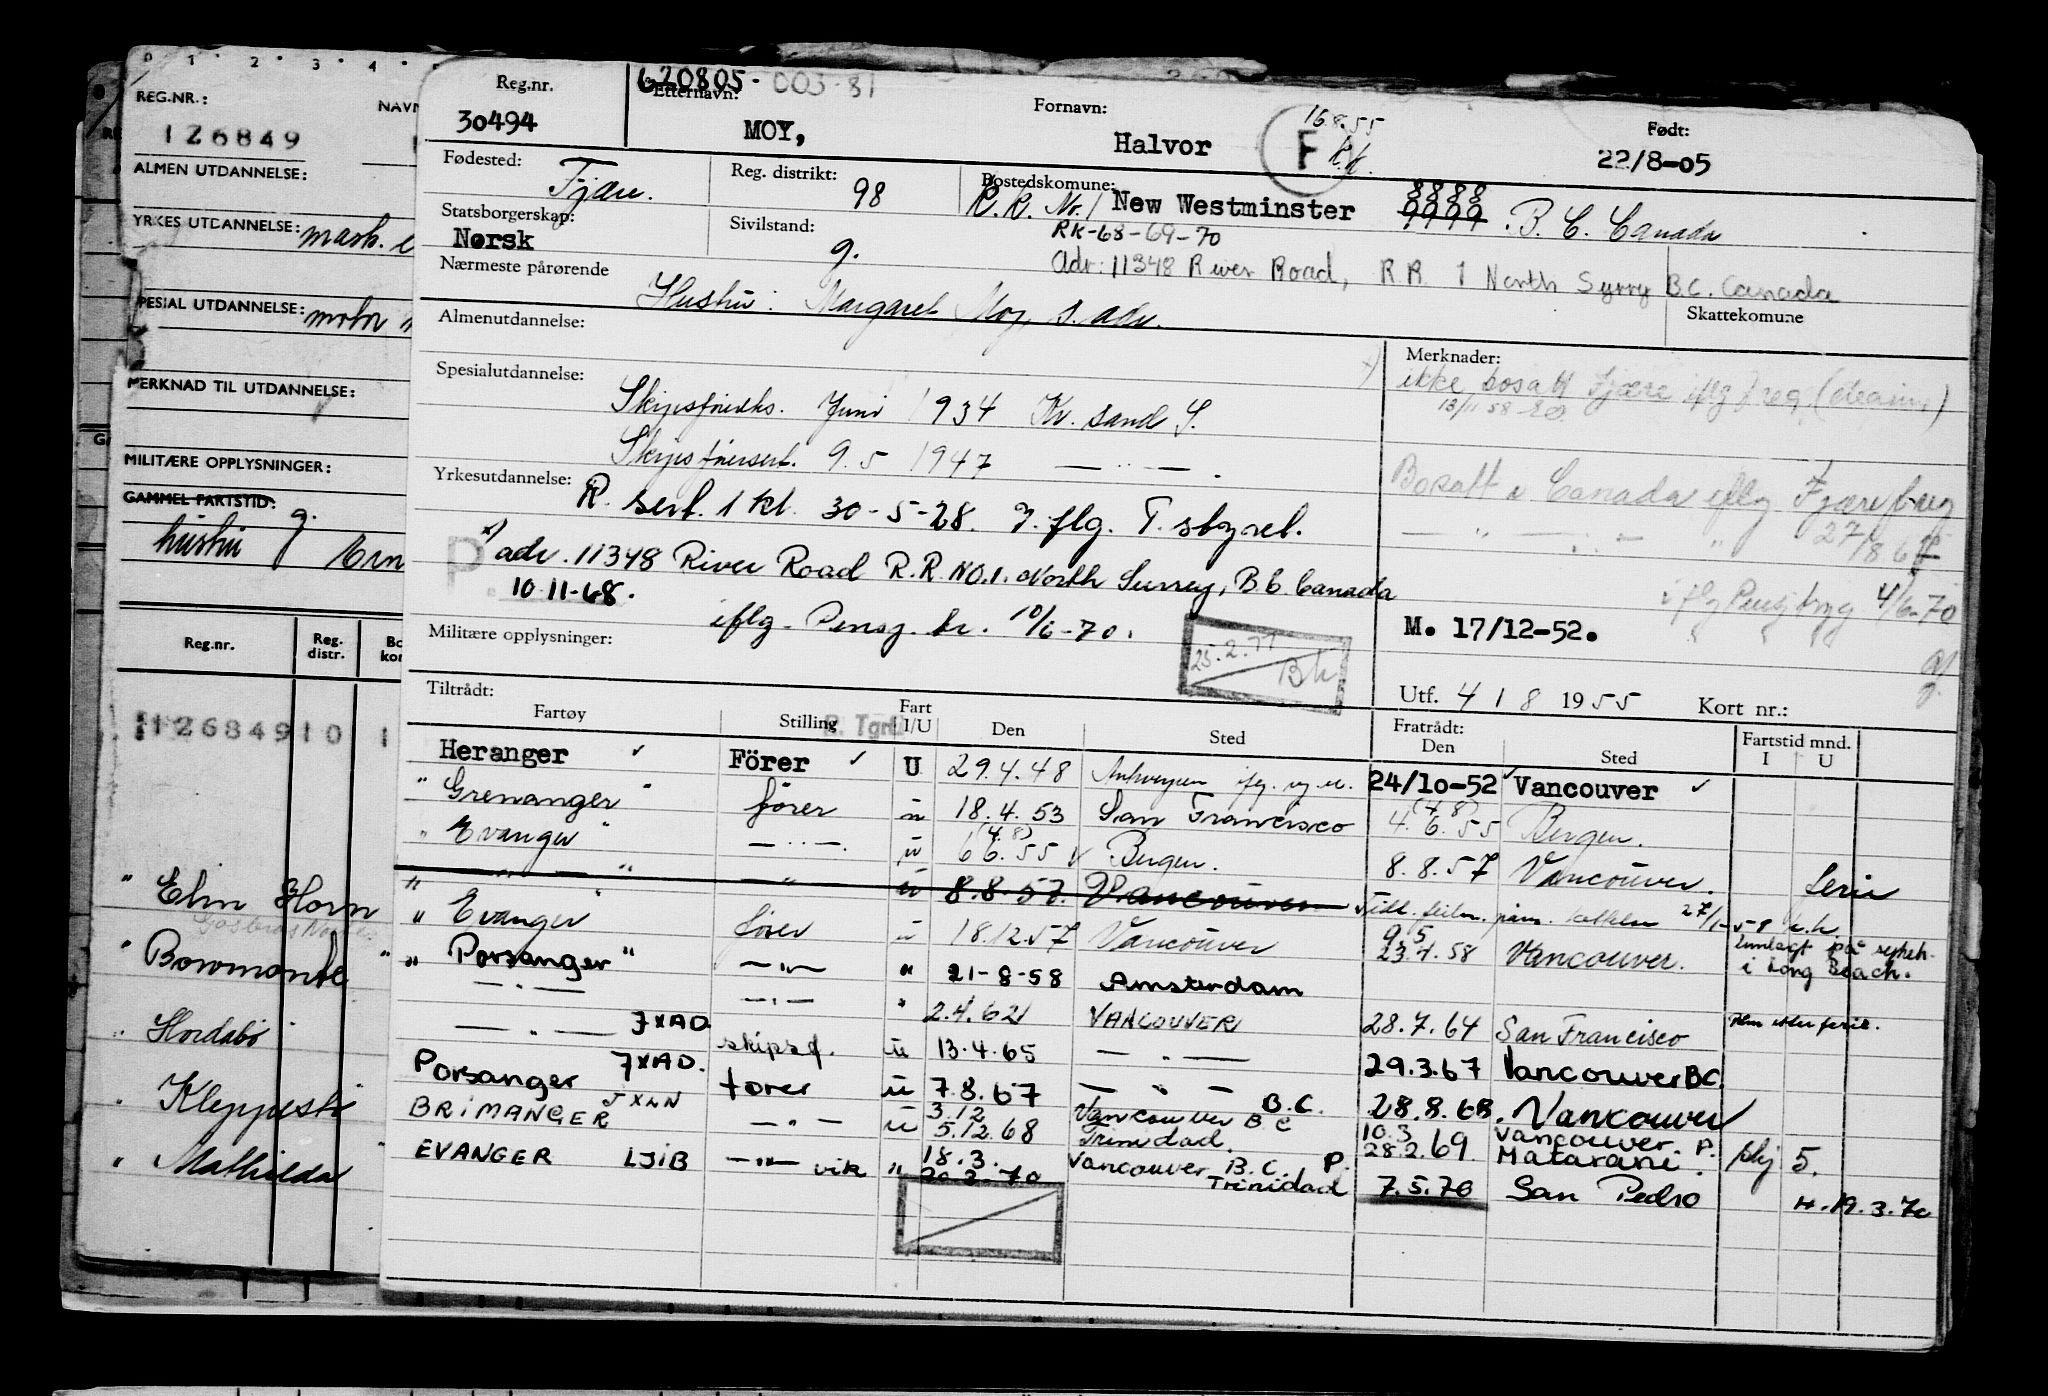 620805-003-81
Reg.nr. Etternavn: Fornavn: 16.8.55 Født:
30494 MOY, Halvor F k.k. 22/8-05
Fødested: Fjære. Reg. distrikt: 98 Bostedskomune: R.R. Nr. 1 New Westminster 8888 9999 B.C. Canada
Statsborgerskap: Norsk Sivilstand: g. RK-68-69-70
Adr: 11348 River Road, R R 1 North Syrry B.C. Canada
Nærmeste pårørende Hustru: Margaret Moy s. adr. Skattekomune
Almenutdannelse: Merknader:
ikke bosatt Fjære iflg
13/11 58
Spesialutdannelse: Skipsførerks. Juni 1934 Kr. sand S.
Skipsførersert. 9.5 1947 — " — .
Bosatt i Canada iflg Fjære
— " — " 27/8 6
Yrkesutdannelse: R. sert. 1 kl. 30-5-28.
P. x) adr. 11348 River Road R.R. NO.1. North Surrey, B C Canada
10.11-68. iflg. Pensj. tr. 10/6-70.
iflg 4/6-70
M. 17/12-52.
Militære opplysninger: 25.2.77 Bk
Utf. 4 / 8 1955 Kort nr.:
Tiltrådt: Fratrådt: Fartstid mnd.
Fartøy Stilling Fart I/U Den Sted Den Sted I U
Heranger Förer U 29.4.48 Antwerpen 24/10-52 Vancouver
" Grenanger " fører u 18.4.53 San Francisco 4.6.55 (4.8) Bergen.
" Evanger " — " — u 6 6.55 (4.8) Bergen. 8.8.57 Vancouver. ferie
— " — " — " u 8.8.57. Vancouver 27/1-58 k.k
" Evanger " fører u 18.12.57 Vancouver 9 5 23.4.58 Vancouver. Innlagt på sykeh. i Long Beach.
" Porsanger " — " — " 21-8-58 Amsterdam
— " — — " — " 2.4.62 VANCOUVER 28.7.64 San Francisco
— " — JXAD skipsf. u 13.4.65 — " — 29.3.67 Vancouver BC.
Porsanger JXAD. fører u 7.8.67 — " — B.C. 28.8.68. Vancouver
BRIMANGER JXLN — " — u 3.12 5.12.68 Vancouver BC Trinidad. 10.3 28.2.69 Vancouver. P. Matarani. 5.
EVANGER LJIB — " — vik " 18.3. 20.3.70 Vancouver B.C. P. Trinidad 7.5.70 San Pedro 19.3.70
0 1 2 3 4
REG.NR.: NAVN
126849
ALMEN UTDANNELSE:
YRKES UTDANNELSE: mask.
SPESIAL UTDANNELSE: motor
MERKNAD TIL UTDANNELSE:
MILITÆRE OPPLYSNINGER:
GAMMEL FARTSTID: g.
hustru
Reg.nr. Reg. distr.
126849 10 1
" Elin Horn
" Bowmonte "
" Hordabø
" Kleppesto
" Mathilda